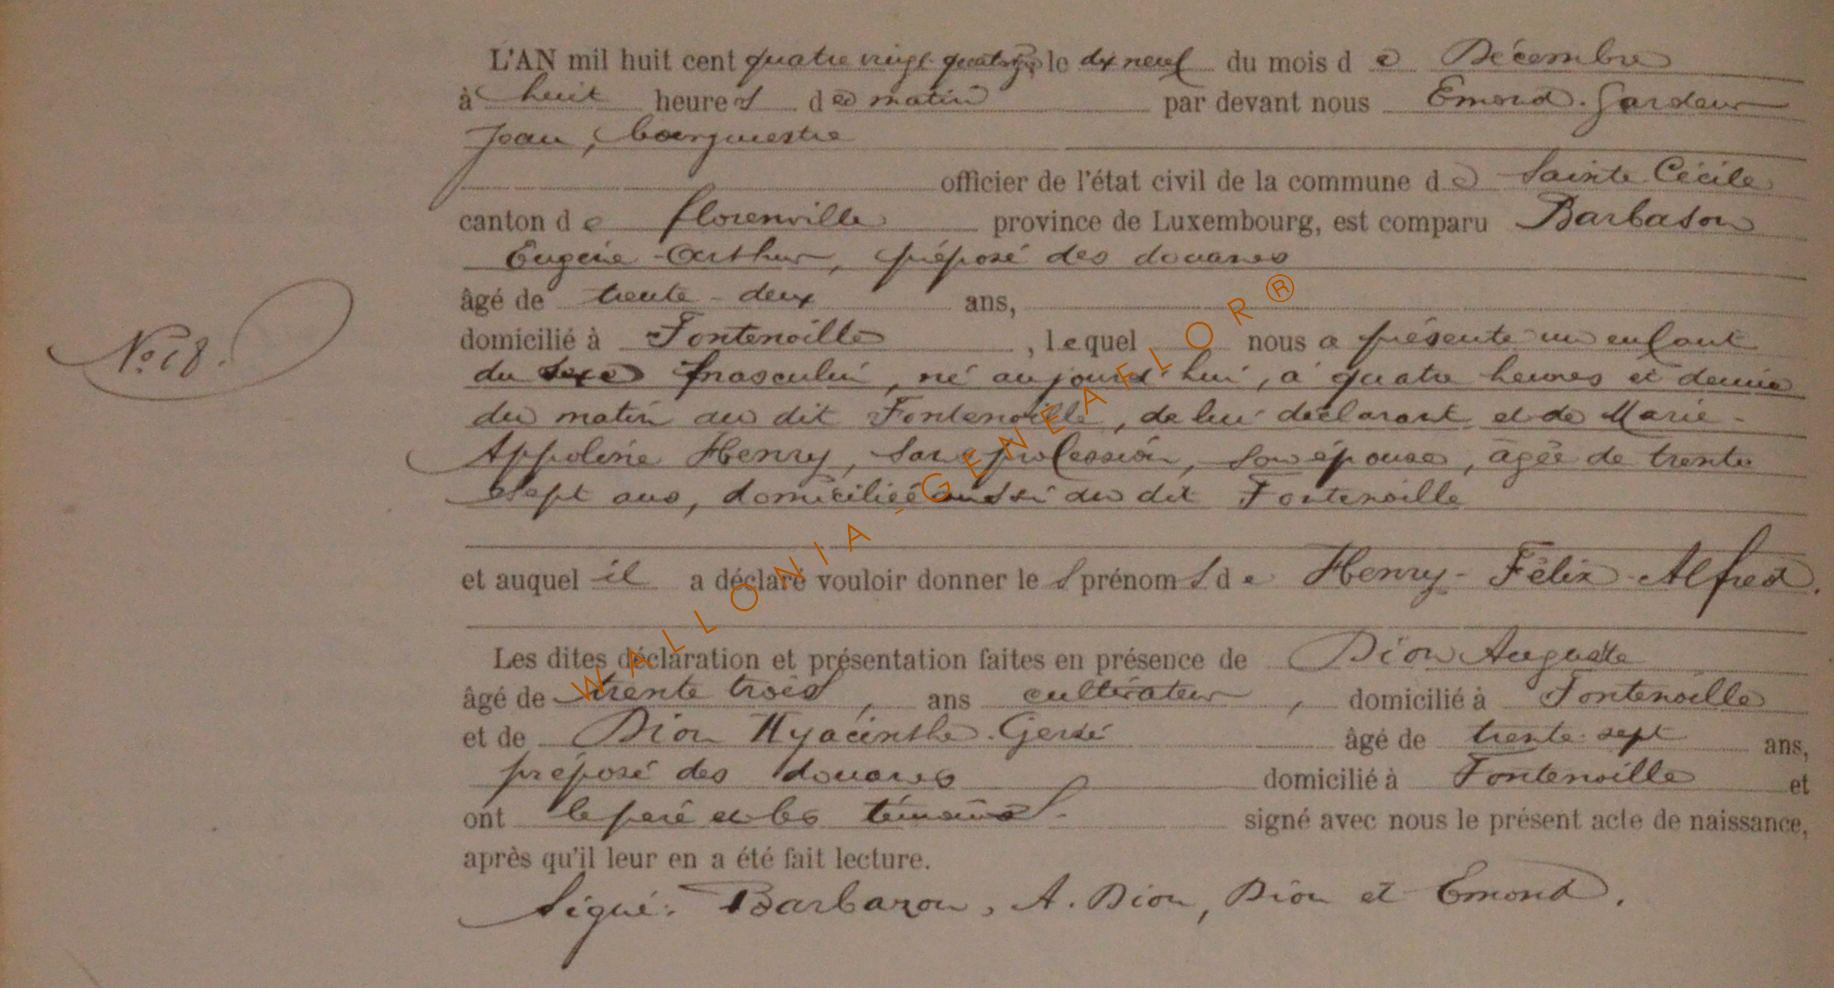 L'AN mil huit cent quatre vingt quatorze le dix neuf du mois de Décembre
à huit heures de matin par devant nous Emond. Gardeur
Jean, bourgmestre
officier de l'état civil de la commune de Sainte Cécile
canton de florenville province de Luxembourg, est comparu Barbason
Eugène-Arthur, préposé des douanes
âgé de trente-deux ans,
domicilié à Fontenoille, lequel nous a présenté un enfant
N° 18.
du sexe masculin, né aujourd'hui, à quatre heures et demie
du matin au dit Fontenoille, de lui déclarant et de Marie-
Appolinie Henry, sans profession, son épouse, âgée de trente
sept ans, domiciliée aussi au dit Fontenoille
et auquel il a déclaré vouloir donner les prénoms de Henry-Félix-Alfred.
Les dites déclaration et présentation faites en présence de Dion Auguste
âgé de trente trois, ans cultivateur, domicilié à Fontenoille
et de Dion Hyacinthe. âgé de trente-sept ans,
préposé des douanes domicilié à Fontenoille et
ont le père et les témoins signé avec nous le présent acte de naissance,
après qu'il leur en a été fait lecture.
Signé: Barbazon, A. Dion, Dion et Emond.
WALLONIA-GENEAFLOR®